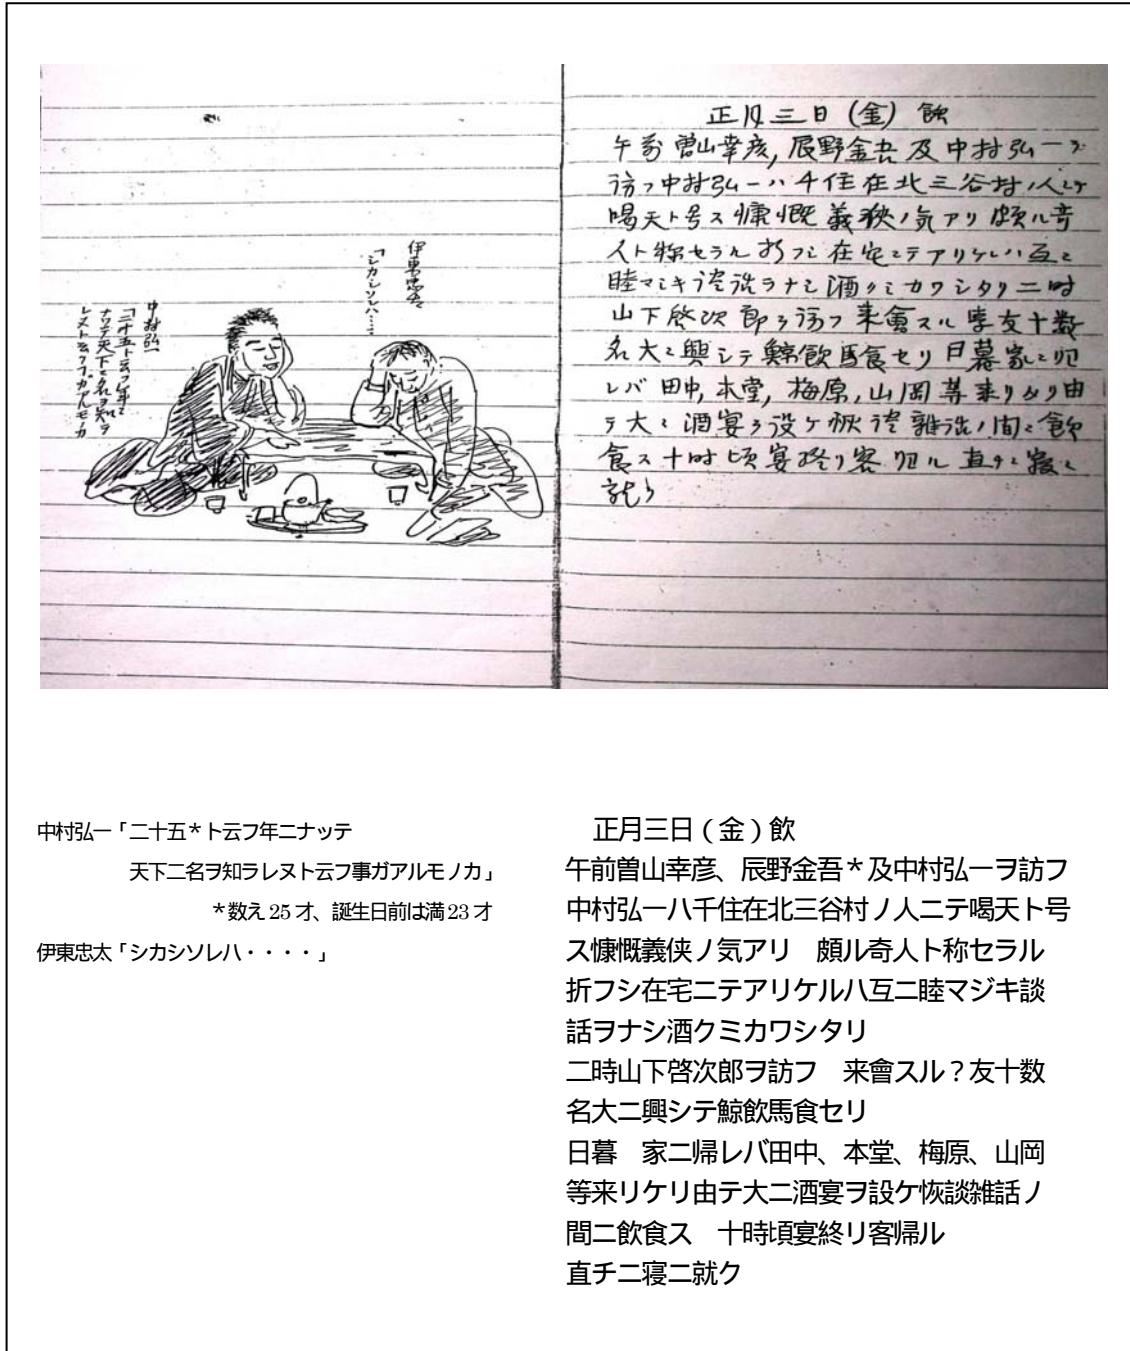 伊東忠太
「シカシソレハ‥‥
中村弘一
「二十五ト云フ年ニ
ナッテ天下ニ名ヲ知ラ
レヌト云フ事ガアルモノカ
正月三日(金) 飲
午前曽山幸彦,辰野金吾及中村弘一ヲ
訪フ中村弘一ハ千住在北三谷村ノ人ニテ
喝天ト号ス慷慨義狹ノ気アリ頗ル奇
人ト称セラル折フシ在宅ニテアリケレハ互ニ
睦マシキ談話ヲナシ酒クミカワシタリ二時
山下啓次郎ヲ訪フ来會スル学友十数
名大ニ興シテ鯨飲馬食セリ日暮家ニ帰
レバ田中,本堂,梅原,山岡等来りケリ由
テ大ニ酒宴ヲ設ケ恢談雑話ノ間ニ飲
食ス十時頃宴終リ客帰ル直チニ寝ニ
就ク
中村弘一「二十五*ト云フ年ニナッテ
天下ニ名ヲ知ラレヌト云フ事ガアルモノカ」
*数え25才、誕生日前は満23才
伊東忠太「シカシソレハ・・・・」
正月三日(金)飲
午前曽山幸彦、辰野金吾*及中村弘一ヲ訪フ
中村弘一ハ千住在北三谷村ノ人ニテ喝天ト号
ス慷慨義侠ノ気アリ 頗ル奇人ト称セラル
折フシ在宅ニテアリケルハ互ニ睦マジキ談
話ヲナシ酒クミカワシタリ
二時山下啓次郎ヲ訪フ 来會スル?友十数
名大ニ興シテ鯨飲馬食セリ
日暮 家ニ帰レバ田中、本堂、梅原、山岡
等来リケリ由テ大ニ酒宴ヲ設ケ恢談雑話ノ
間ニ飲食ス 十時頃宴終リ客帰ル
直チニ寝ニ就ク